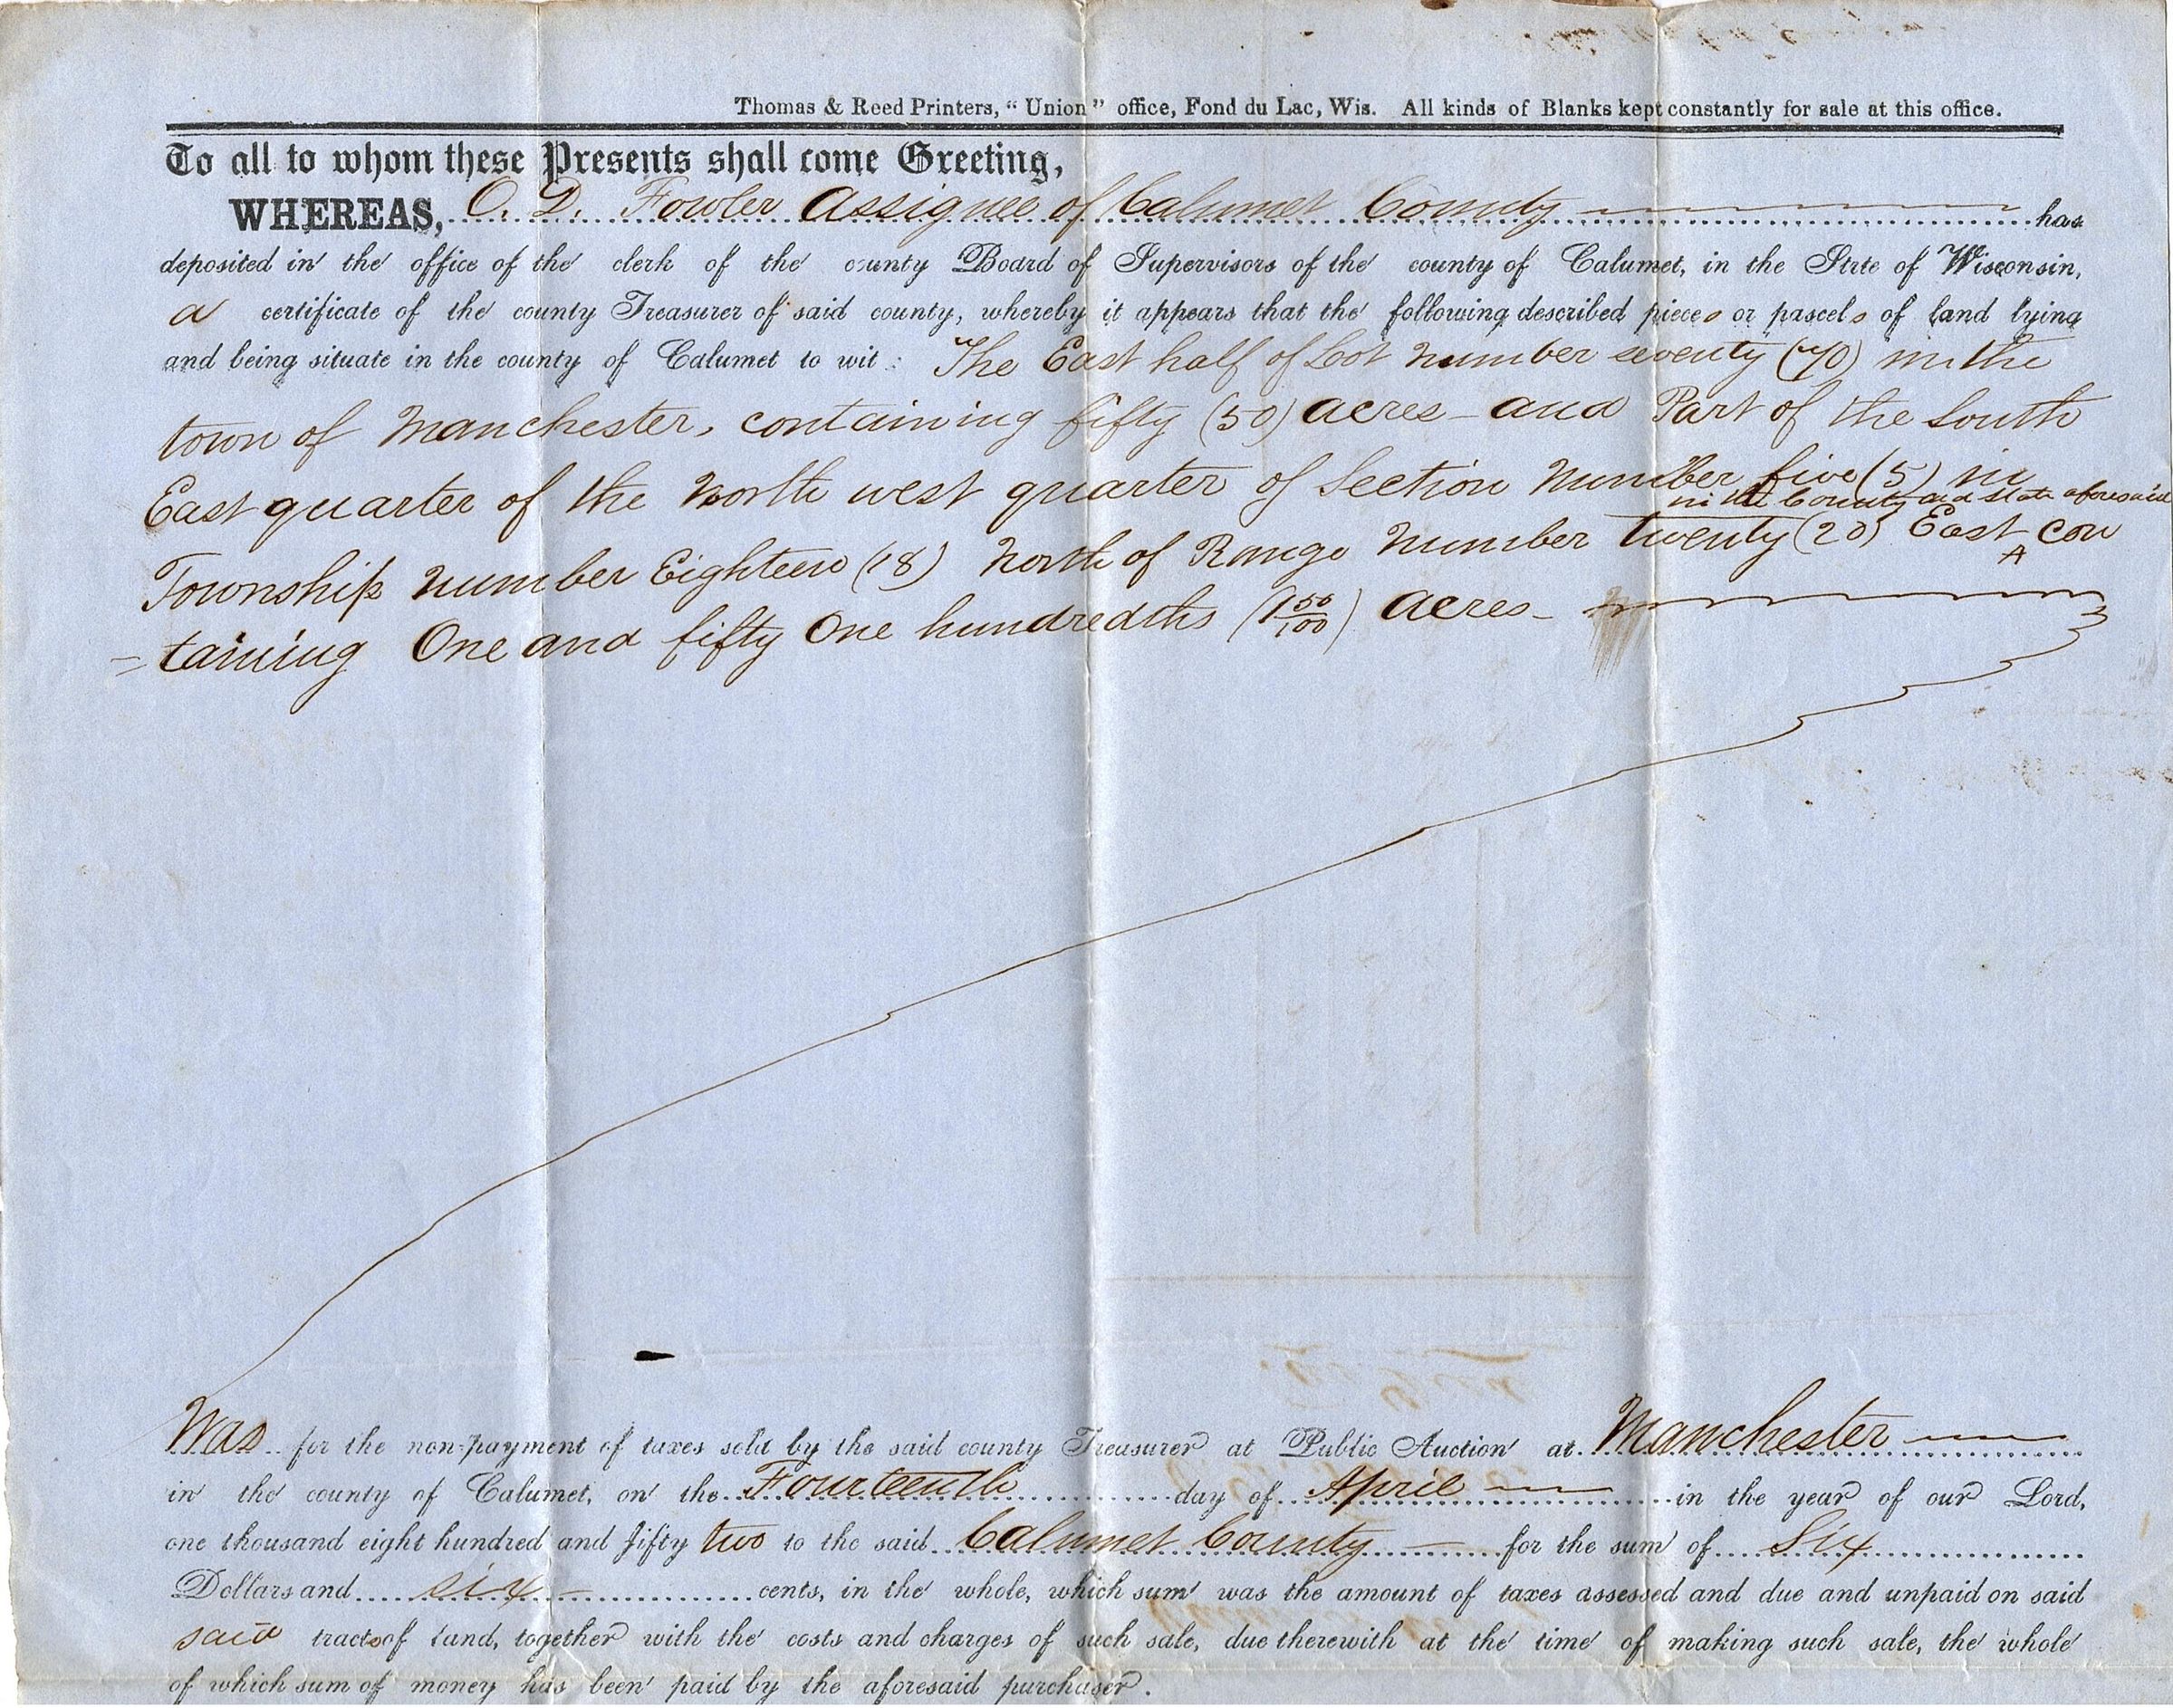 Thomas & Reed Printers, "Union" office, Fond du Lac, Wis. All kinds of Blanks kept constantly for sale at this office.
To all to whom these Presents shall come Greeting,
WHEREAS, O. D. Fowler Assignee of Calumet County has
deposited in the office of the clerk of the county Board of Supervisors of the county of Calumet, in the Strte of Wisconsin,
a certificate of the county Treasurer of said county, whereby it appears that the following described pieces or pascels of land lying
and being situate in the county of Calumet to wit: The East half of Lot Number seventy (70) in the
town of Manchester, containing fifty (50) acres - and Part of the South
East quarter of the North west quarter of Section Number five (5) in
in the County and State aforesaid
Township number Eighteen (18) North of Range Number twenty (20) East con
=taining One and fifty One hundredths (1 50/100) acres -
Was for the non-payment of taxes sold by the said county Treasurer at Public Auction at Manchester
in the county of Calumet, on the Fourteenth day of April in the year of our Lord,
one thousand eight hundred and fifty two to the said Calumet County for the sum of Six
Dollars and six cents, in the whole, which sum was the amount of taxes assessed and due and unpaid on said
said tracts of land, together with the costs and charges of such sale, due therewith at the time of making such sale, the whole
of which sum of money has been paid by the aforesaid purchaser.